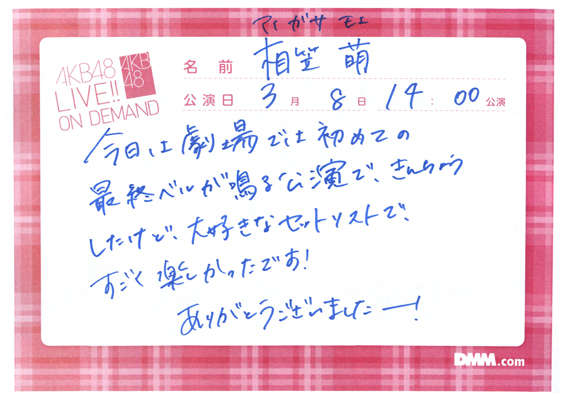 アイガサ モエ
AKB48
LIVE!!
ON DEMAND
AKB
48
名前 相笠 萌
公演日 3月 8日 14:00公演
今日は劇場では初めての
最終ベルが鳴る公演で、きんちょう
したけど、大好きなセットリストで、
すごく楽しかったです!
ありがとうございましたー!
DMM.com